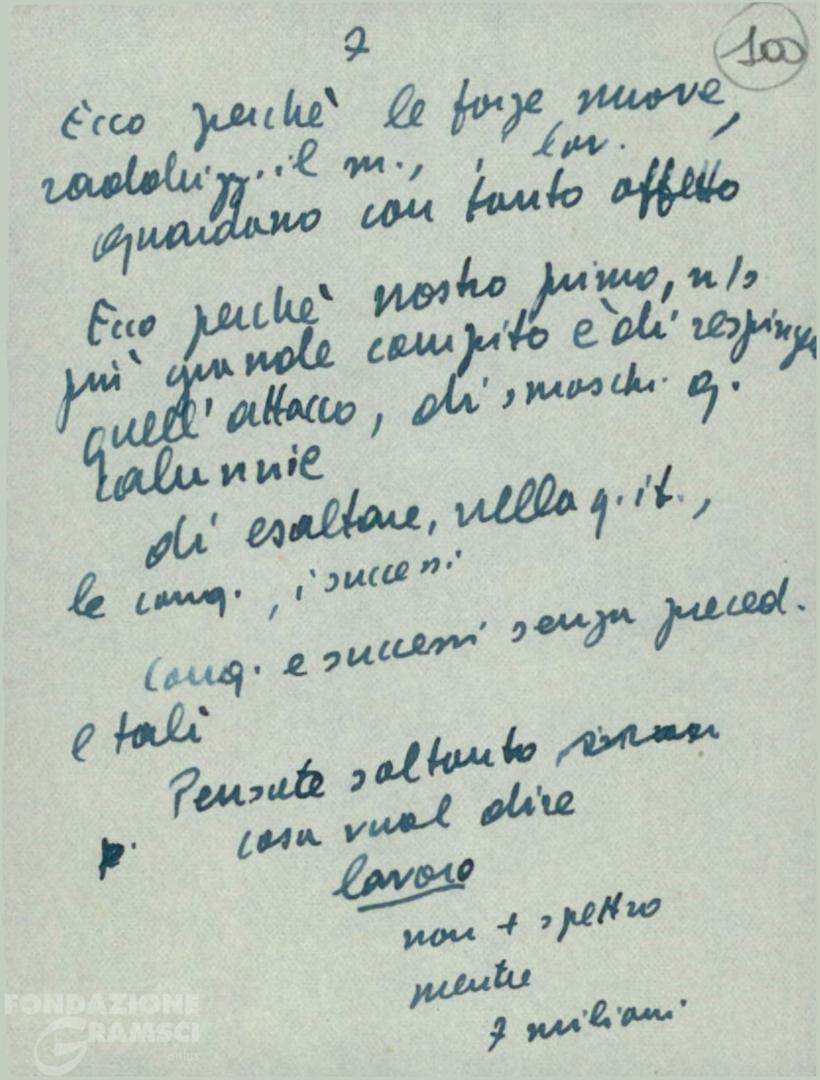 7
100
Ecco perchè le forze nuove,
raddrizz..il m., i lav.
guardano con tanto affetto
Ecco perchè nostro primo, n/s
più grande compito è di respinger
quell'attacco, di smasch. q.
calunnie
di esaltare, nella q. it.,
le conq., i successi
Conq. e successi senza preced.
e tali
Pensate soltanto
cosa vuol dire
lavoro
non + spettro
mentre
7 milioni
FONDAZIONE
GRAMSCI
onlus